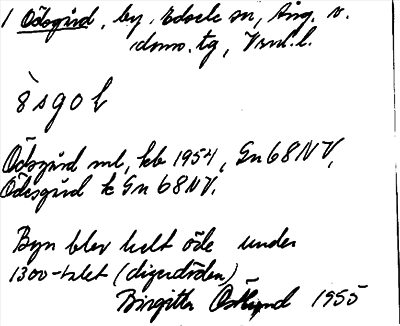 1 Ödsgård, by, Edsele sn, Ång. v.
doms. tg, Vrnl. l.
ò s g o ɫ
Ödsgård ml, kb 1954, Gn 68 NV,
Ödesgård tk Gn 68 NV.
Byn blev helt öde under
1300-talet (digerdöden)
Birgitta Östlund 1955